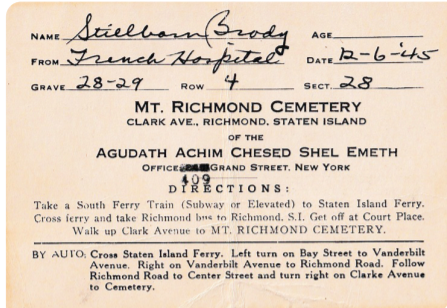 NAME Stillborn Brody AGE
FROM French Hospital DATE 12-6-'45
GRAVE 28-29 ROW 4 SECT. 28
MT. RICHMOND CEMETERY
CLARK AVE., RICHMOND, STATEN ISLAND
OF THE
AGUDATH ACHIM CHESED SHEL EMETH
OFFICE GRAND STREET, NEW YORK
409
DIRECTIONS:
Take a South Ferry Train (Subway or Elevated) to Staten Island Ferry.
Cross ferry and take Richmond bus to Richmond, S.I. Get off at Court Place.
Walk up Clark Avenue to MT. RICHMOND CEMETERY.
BY AUTO: Cross Staten Island Ferry. Left turn on Bay Street to Vanderbilt
Avenue. Right on Vanderbilt Avenue to Richmond Road. Follow
Richmond Road to Center Street and turn right on Clarke Avenue
to Cemetery.